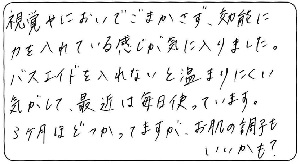 視覚やにおいでごまかさず、効能に
力を入れている感じが気に入りました。
バスエイドを入れないと温まりにくい
気がして、最近は毎日使っています。
3ヶ月ほどつかってますが、お肌の調子も
いいかも?